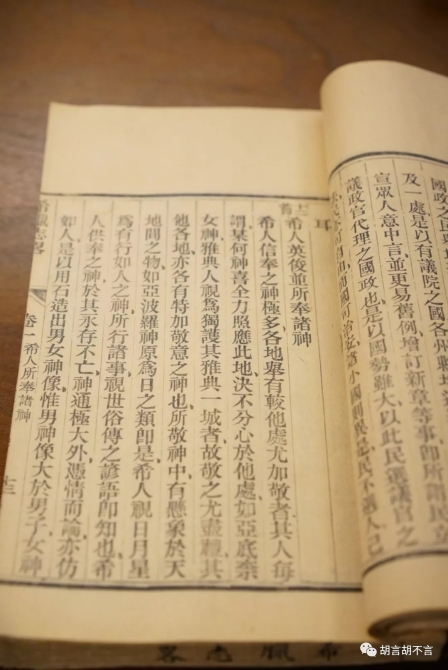 國政之
及一處是以有議院之國各州縣
宣眾人意中言並更易舊例增訂新章等事即應請民立
議政官代理之國政也是以國勢雖大以此民選議官之
小國則異是民不過
耳
希人英俊並所奉諸神
希人信奉之神極多各地舉有較他處尤加敬者其人每
謂某何神喜全力照應此地決不分心於他處如亞底柰
女神雅典人視爲獨護其雅典一城者故敬之尤盡禮其
他各地亦各有特加敬意之神也所敬神中有懸象於天
地間之物如亞波羅神原爲日之類即是希人視日月星
爲有行如人之神所行諸事視世俗傳之諺語即知也希
人供奉之神於其永存不亡神通極大外憑情而論亦仿
如人是以用石造出男女神像惟男神像大於男子女神
希臘志略 卷一 希人所奉諸神 十三
希臘志略
胡言胡不言